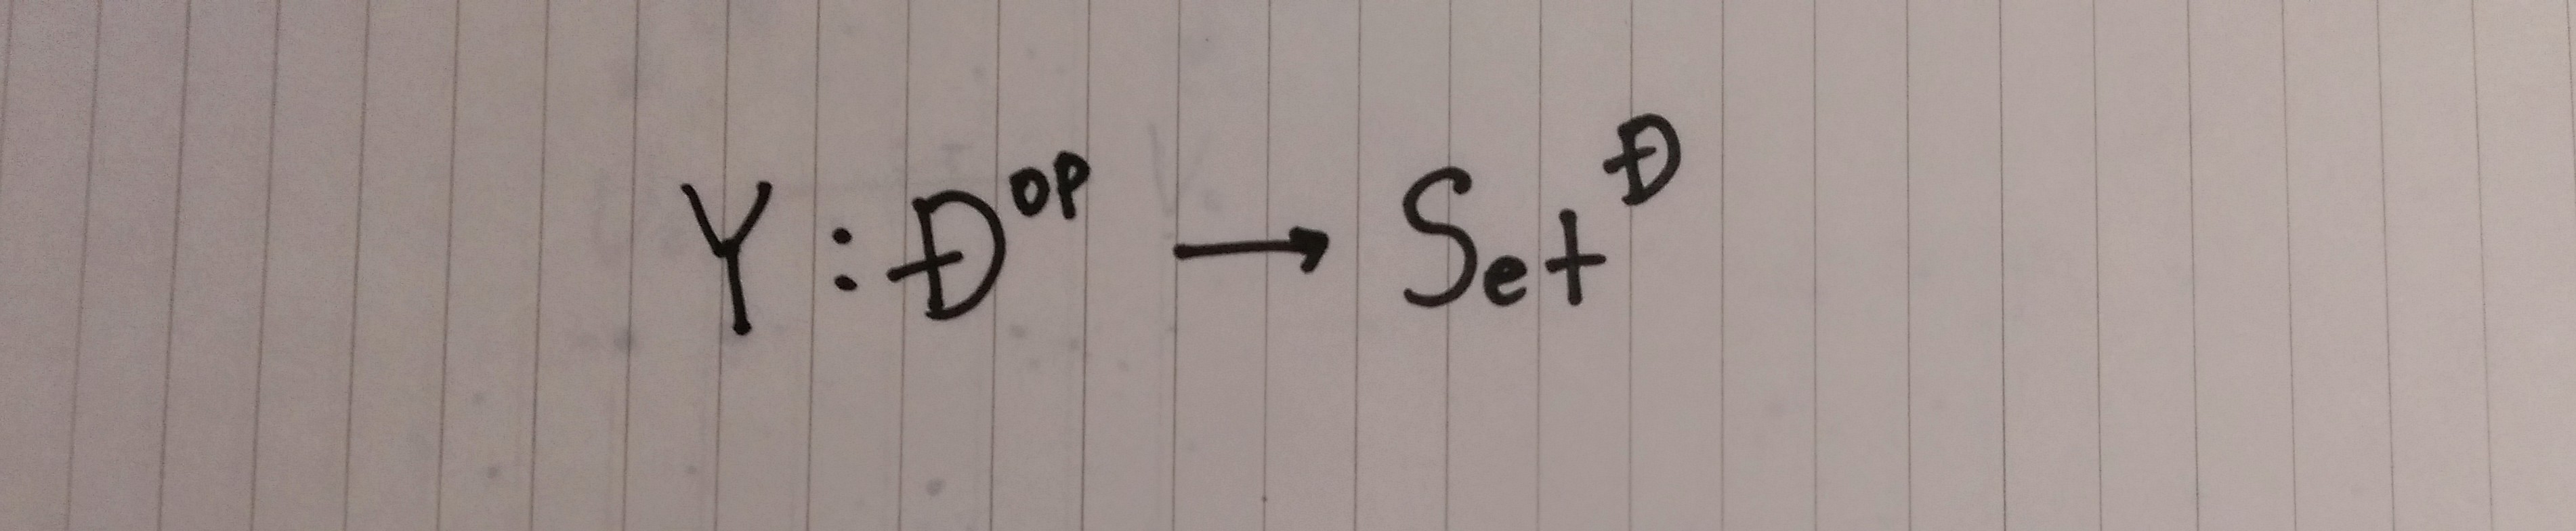 Y : Đᵒᵖ → Setᴰ̵